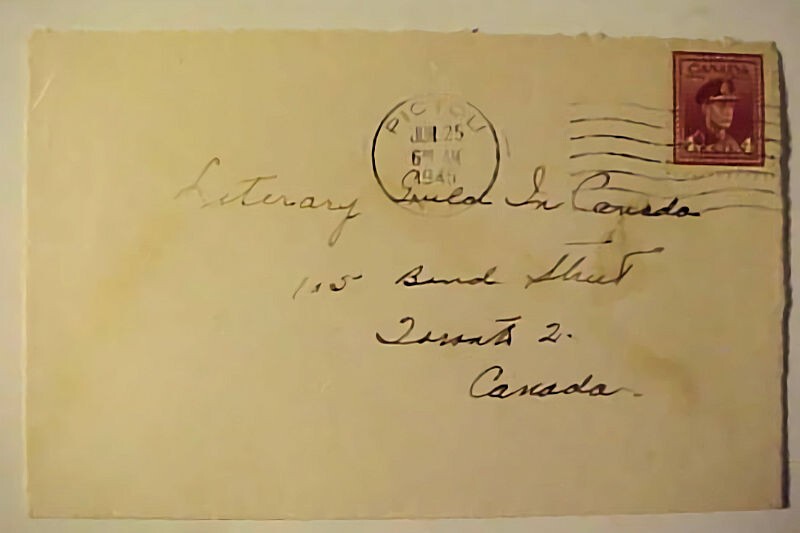 CANADA
4 4
PICTOU
JUN 25
6 AM
194
Literary Guild In Canada
105 Bond Street
Toronto 2.
Canada.